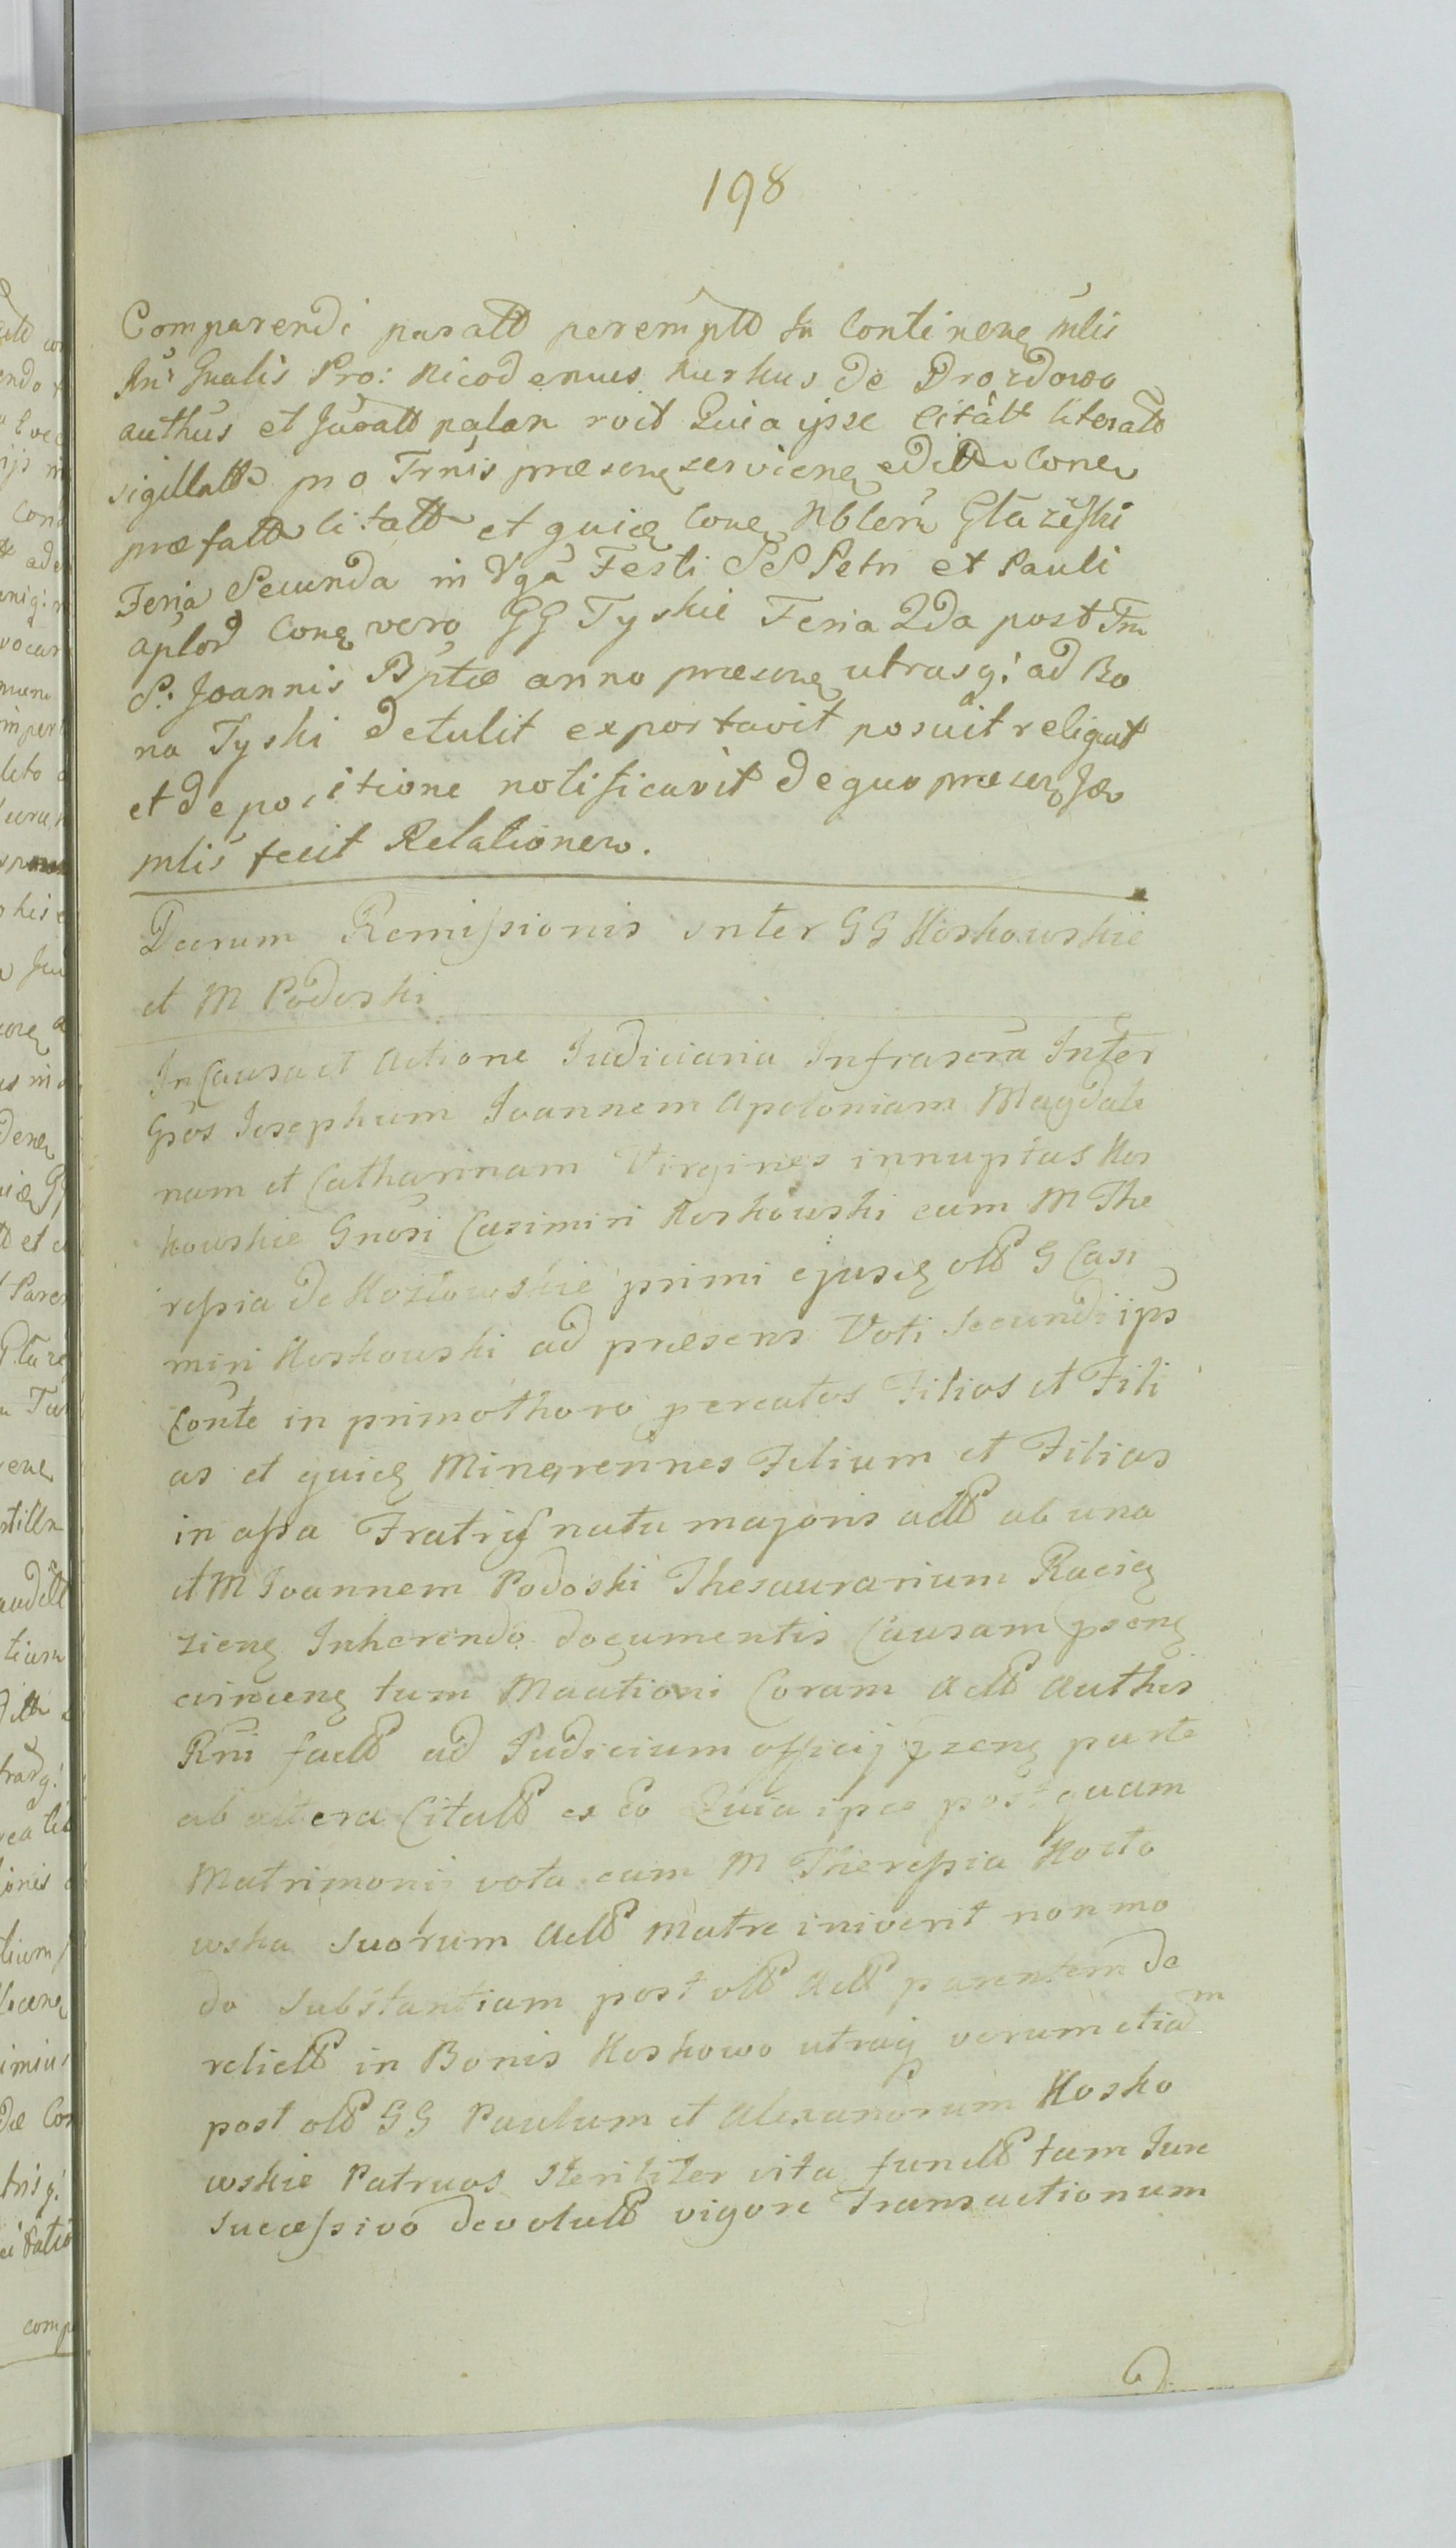 198
Comparendi paratt peremptt In Continenę mlis
Anr Gnalis Pro: Nicodemus Kurkus de Drozdowo
authus et Juratt palam roit Quia ipse Citatt literatt
sigillatt pro Trnis præsenę servienę editt Conę
præfatt citatt et quidę Conę Nblem Głażeski
Feria Secunda in Vga Festi SS Petri et Pauli
aplor Conę vero GG Tyskie Feria 2da post Fm
S. Joannis Bptæ anno præsenę utrasq: ad Bo
na Tyski detulit exportavit posuit reliquit
et de positione notificavit de quo præsenę suæ
mlis fecit Relationem.
Decrum Remissionis inter GG Koskowskie
et M Podoski
In Causa et Actione Judiciaria Infrascra Inter
Gsos Josephum Joannem Apoloniam Magdale
nam et Catharinam Virgines innuptas Kos
kowskie Gnosi Casimiri Koskowski cum M The
ressia de Kozłowskie primi ejusdę olt G Casi
miri Koskowski ad præsens Voti Secundi ips
Conte in primo thoro pcreatos Filios et Fili
as et quidę Minorennes Filium et Filias
in assa Fratris natu majoris actt ab una
et M Joannem Podoski Thesaurarium Racię
zienę Inherendo documentis Causam psenę
cirnenę tum Mautioni Coram Actt Authis
Rni factt ad Judicium officij pzenę parte
ab altera Citatt ex eo Quia ipse postquam
Matrimonij vota cum M Theressia Kozło
wska suorum Actt Matre iniverit non mo
do substantiam post olt Actt parentem de
relictt in Bonis Koskowo utraq verum etiam
post olt GG Paulum et Alexandrum Kosko
wskie Patruos steriliter vita functt tam Jure
Successivo devolutt vigore Transactionum